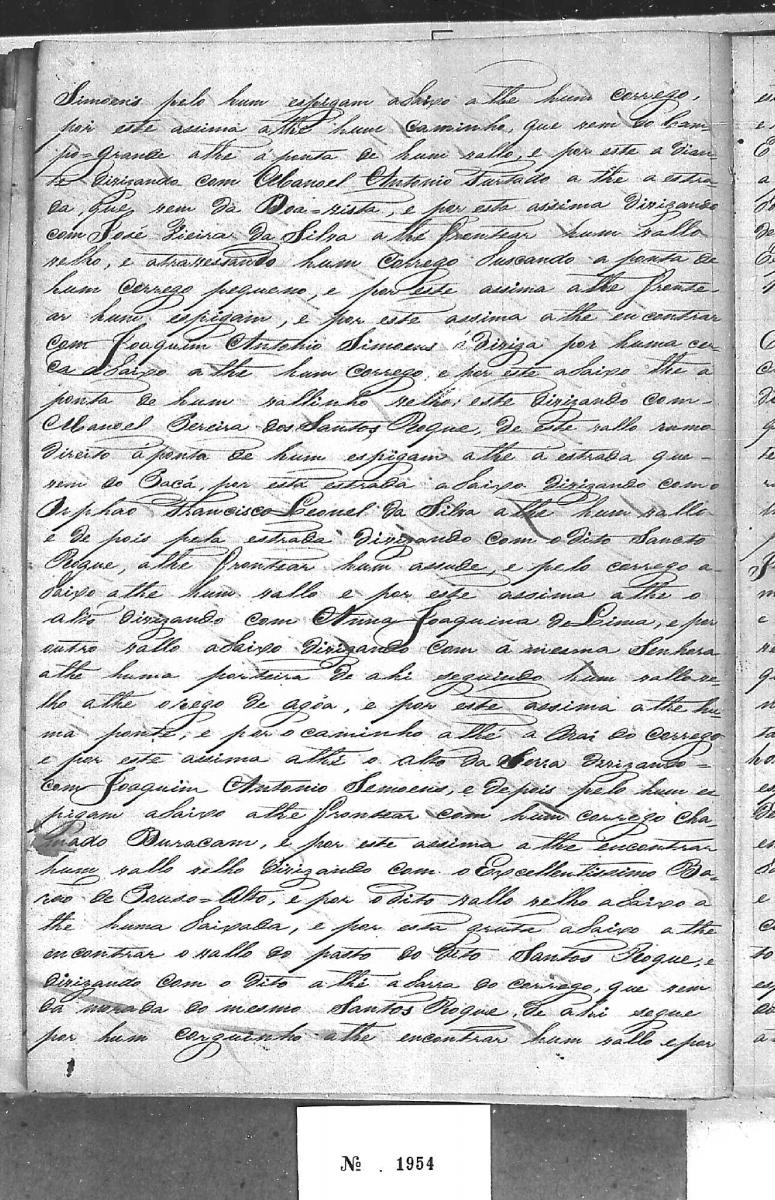 Simoens pelo hum espigam abaixo athe hum corrego,
por este assima athe hum caminho, que vem do Cam-
po=grande athe a ponta de hum vallo, e por este a dian-
te divizando com Manoel Antonio Furtado a the a estra-
da, que vem da Boa=vista, e por esta assima divizando
com José Vieira da Silva a the frontear hum vallo
velho, e atravessando hum corrego buscando a ponta de
hum corrego pequeno, e por este assima athe fronte-
ar hum espigam, e por este assima athe encontrar
com Joaquim Antonio Simoens á diviza por huma cer-
ca abaixo athe hum corrego, e por este abaixo the a
ponta de hum vallinho velho; este divizando com-
Manoel Pereira dos Santos Roque, de este vallo rumo
direito á ponta de hum espigam athe á estrada que-
vem do Bacá, por esta estrada abaixo divizando com o
Orphao Francisco Leonel da Silva athe hum vallo
e de pois pela estrada divizando com o dito Sancto
Roque, athe frontear hum assude, e pelo corrego a-
baixo athe hum vallo e por este assima athe o
alto divizando com Anna Joaquina de Lima, e por
outro vallo abaixo divizando com a mesma Senhora
athe huma porteira de ahi seguindo hum vallo ve-
lho athe o rego de agôa, e por este assima athe hu-
ma ponte, e por o caminho athe a Bai do corrego
e por este assima athé o alto da Serra divizando=
com Joaquim Antonio Semoens, e depois pelo hum es
pigam abaixo athe frontear com hum corrego cha-
mado Buracam, e por este assima athe encontrar
hum vallo velho divizando com o Excellentissimo Ba-
rão de Pouso=Alto, e por o dito vallo velho abaixo a
the huma baixada, e por esta gruta abaixo a the
encontrar o vallo do pasto do dito Santos Roque, e
divizando com o dito athé a barra do corrego, que vem
da morada do mesmo Santos Roque, de ahi segue
por hum corguinho athe encontrar hum vallo e por
Nº . 1954